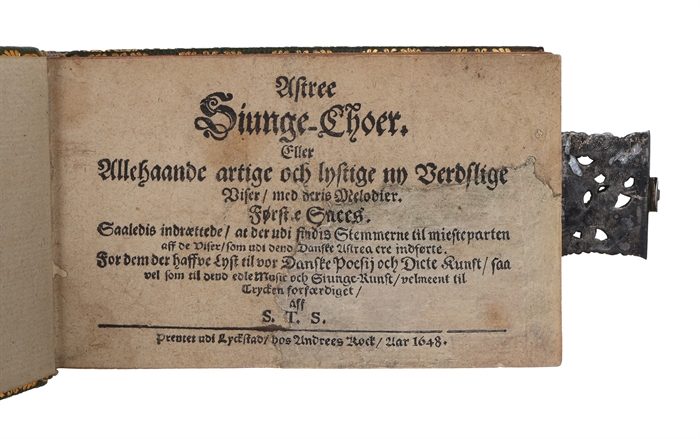 Astree
Siunge-Choer.
Eller
Allehaande artige och lystige ny Verdslige
Viser / med deris Melodier.
Første Snees.
Saaledis indrættede / at der udi findis Stemmerne til miesteparten
aff de Viser / som udi dend Danske Astrea ere indførte.
For dem der haffve Lyst til vor Danske Poesij och Dicte Kunst / saa
vel som til dend edle Music och Siunge-Kunst / velmeent til
Trycken forfærdiget /
aff
S. T. S.
Prentet udi Lyckstad / hos Andreas Kock / Aar 1648.